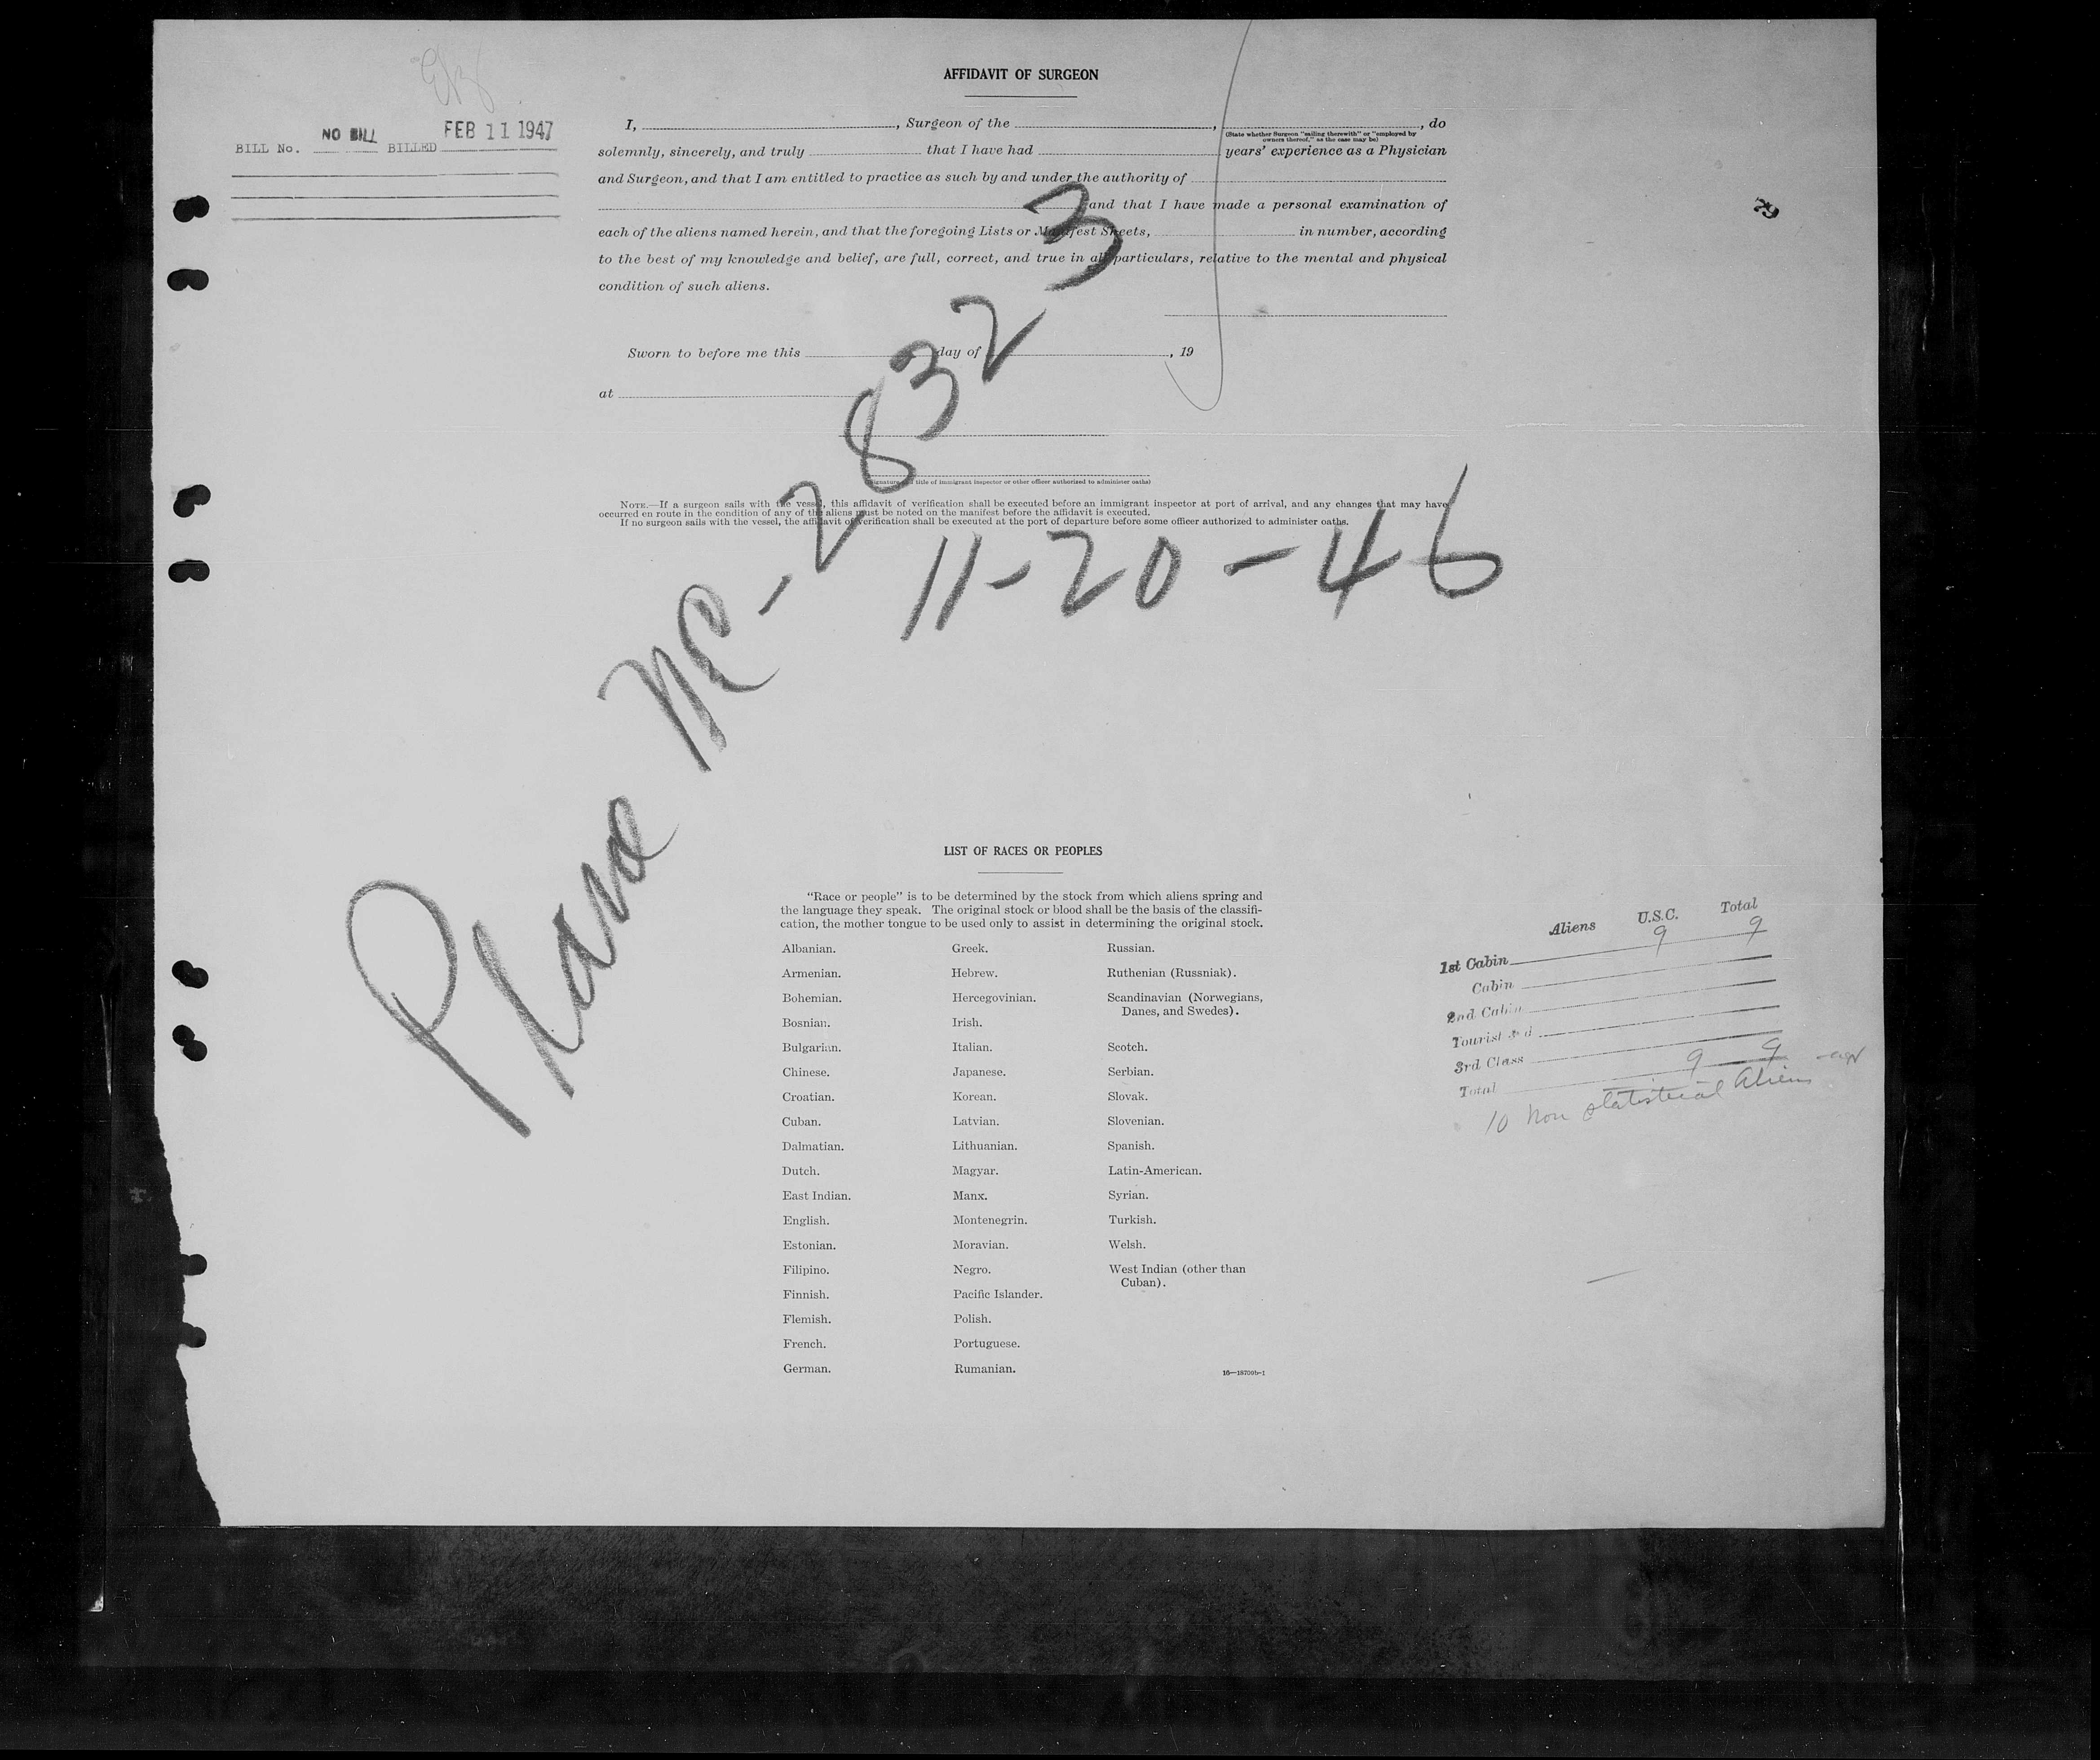 BILL No. NO BILL BILLED FEB 11 1947
AFFIDAVIT OF SURGEON
I, , Surgeon of the , , do
(State whether Surgeon "sailing therewith" or "employed by
owners thereof," as the case may be)
solemnly, sincerely, and truly that I have had years' experience as a Physician
and Surgeon, and that I am entitled to practice as such by and under the authority of
and that I have made a personal examination of
each of the aliens named herein, and that the foregoing Lists or Manifest Sheets, in number, according
to the best of my knowledge and belief, are full, correct, and true in all particulars, relative to the mental and physical
condition of such aliens.
Sworn to before me this day of , 19
at
title of immigrant inspector or other officer authorized to administer oaths)
NOTE.—If a surgeon sails with the vessel, this affidavit of verification shall be executed before an immigrant inspector at port of arrival, and any changes that may have
occurred en route in the condition of any of the aliens must be noted on the manifest before the affidavit is executed.
If no surgeon sails with the vessel, the affidavit of verification shall be executed at the port of departure before some officer authorized to administer oaths.
Plane NC-28323
11-20-46
LIST OF RACES OR PEOPLES
"Race or people" is to be determined by the stock from which aliens spring and
the language they speak. The original stock or blood shall be the basis of the classifi-
cation, the mother tongue to be used only to assist in determining the original stock.
Albanian.
Armenian.
Bohemian.
Bosnian.
Bulgarian.
Chinese.
Croatian.
Cuban.
Dalmatian.
Dutch.
East Indian.
English.
Estonian.
Filipino.
Finnish.
Flemish.
French.
German.
Greek.
Hebrew.
Hercegovinian.
Irish.
Italian.
Japanese.
Korean.
Latvian.
Lithuanian.
Magyar.
Manx.
Montenegrin.
Moravian.
Negro.
Pacific Islander.
Polish.
Portuguese.
Rumanian.
Russian.
Ruthenian (Russniak).
Scandinavian (Norwegians,
Danes, and Swedes).
Scotch.
Serbian.
Slovak.
Slovenian.
Spanish.
Latin-American.
Syrian.
Turkish.
Welsh.
West Indian (other than
Cuban).
16—18709b-1
Aliens U.S.C. Total
1st Cabin 9 9
Cabin
2nd Cabin
Tourist 3rd
3rd Class
Total 9 9
10 Non statistical Aliens